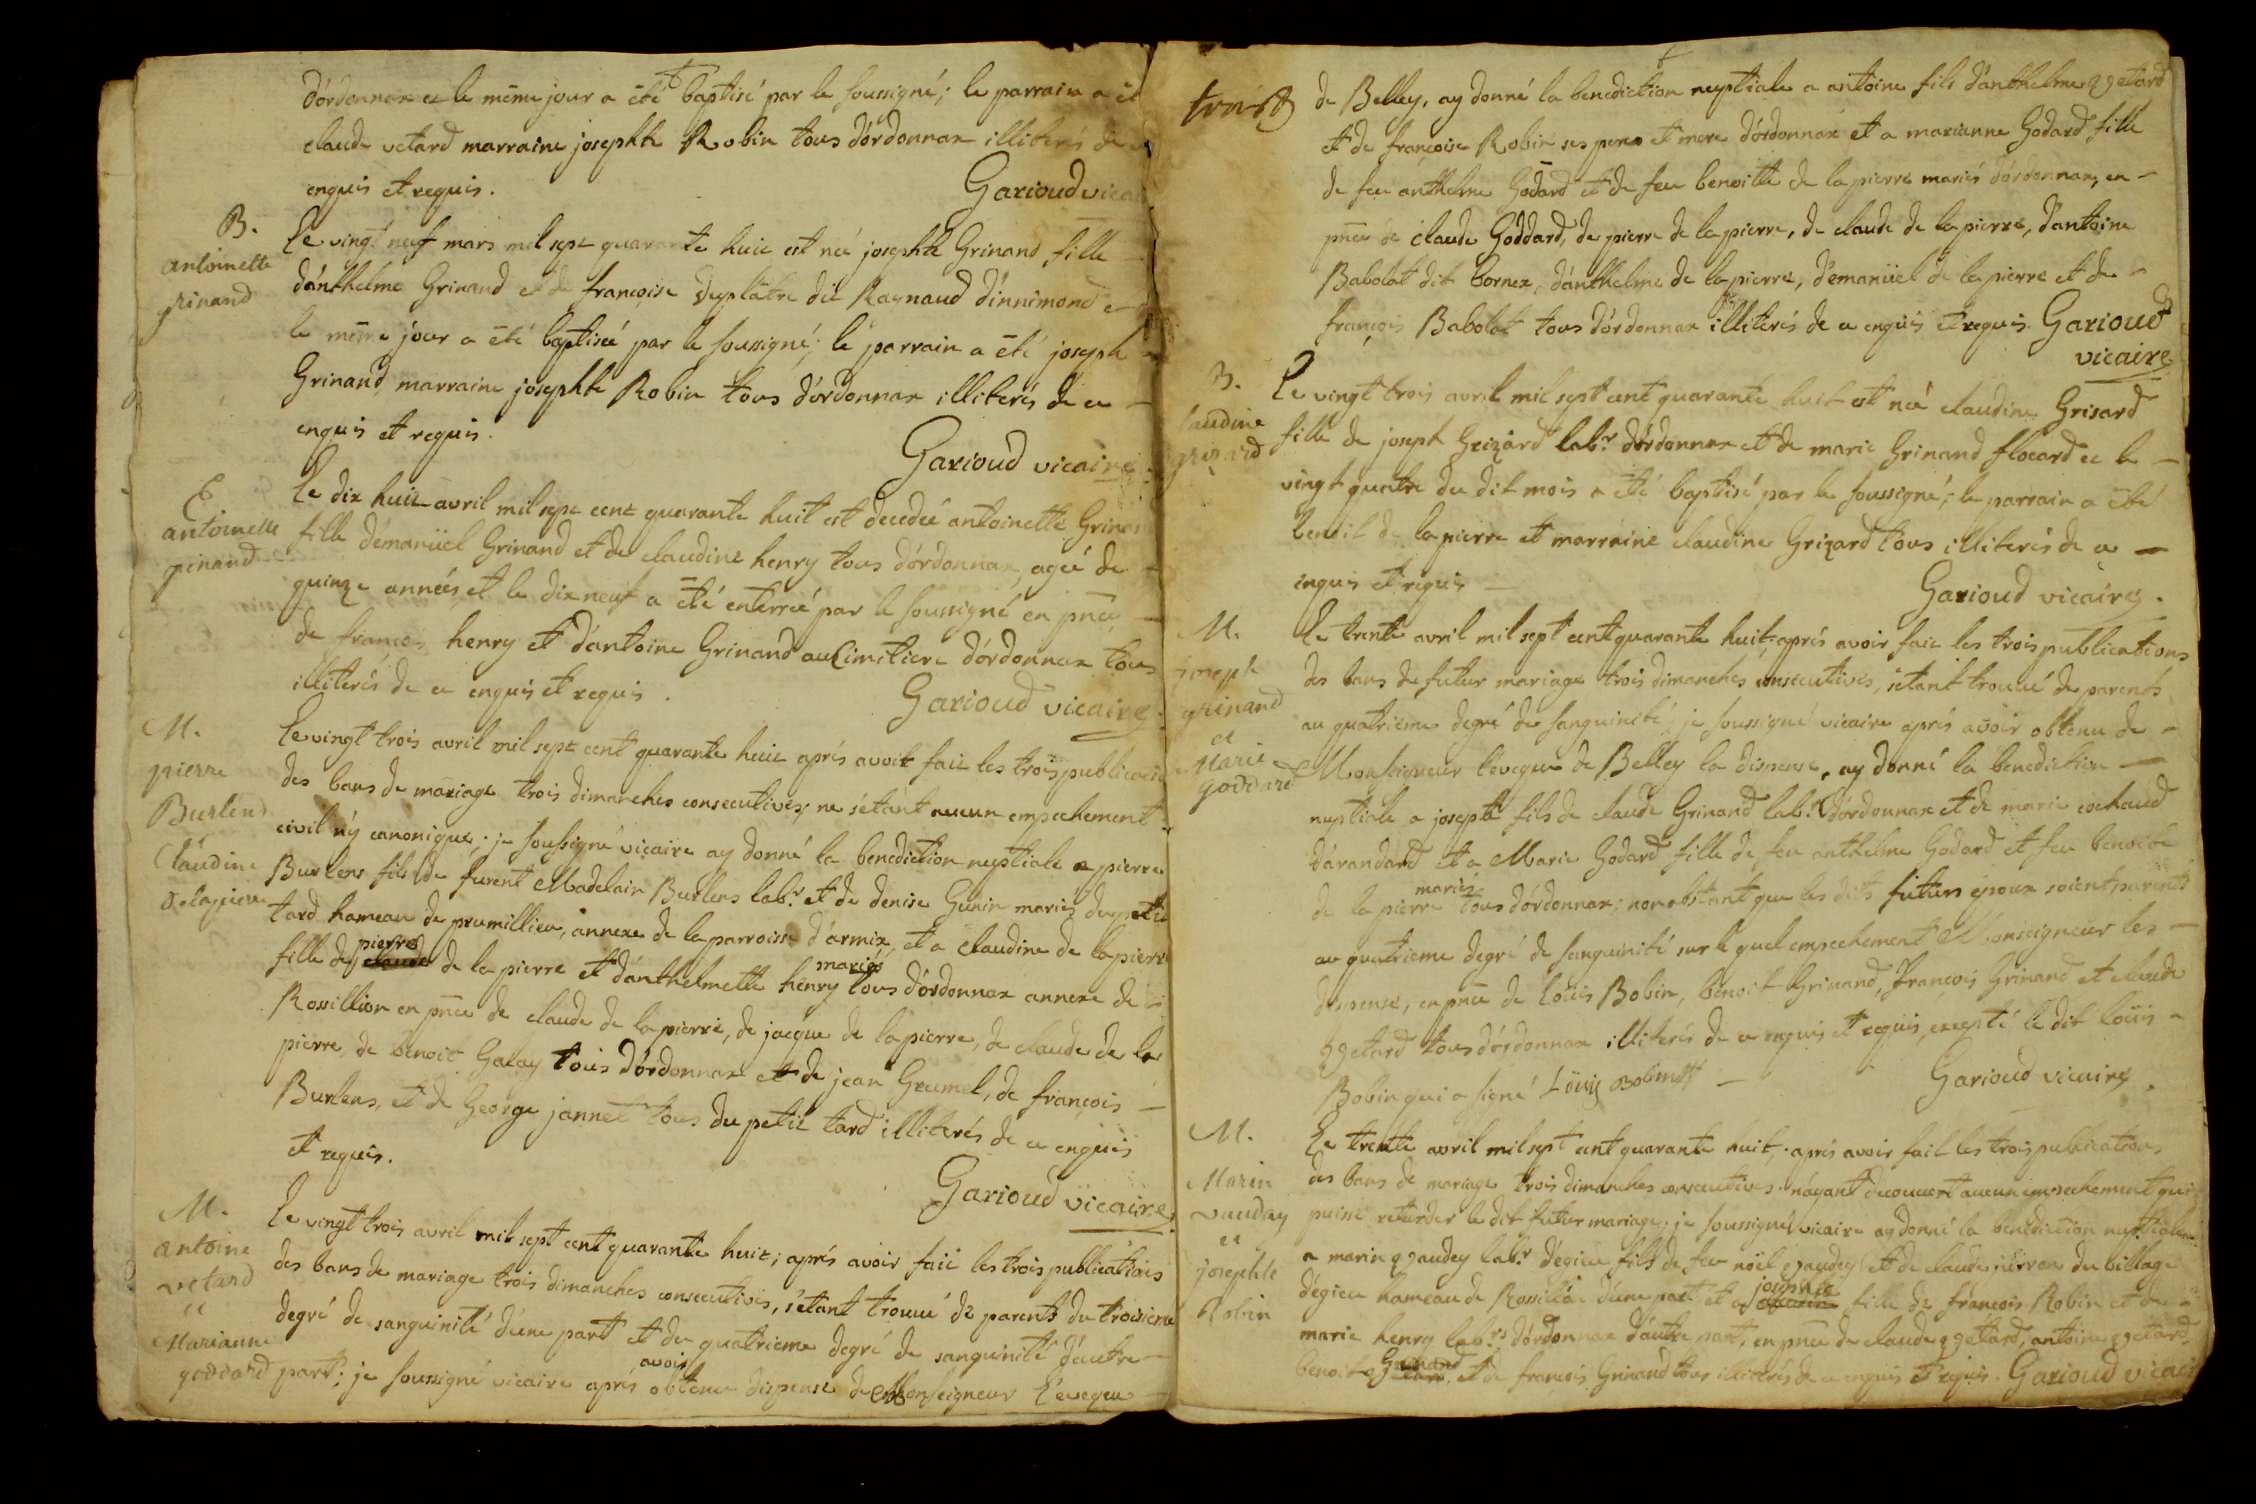 d'órdonnax et le même jour a été baptisé par le soussigné; le parrain a ét
claude vetard marraine josephte Robin tous d'órdonnax illiterés de
enquis et requis.
Garioud vicai
B.
antoinette
grinand
Le vingt neuf mars mil sept quarante huit est née josephte Grinand, fille
d'ánthelme Grinand et de françoise Duplâtre dit Raynaud d'innimond e
le même jour a été baptisée par le soussigné; le parrain a été joseph
Grinand, marraine josephte Robin tous d'órdonnax illiterés de ce -
enquis et requis.
Garioud vicaire.
E
antoinette
grinand
Le dix huit avril mil sept cent quarante huit est decedée antoinette Grinan
fille d'émanüel Grinand et de claudine henry tous d'órdonnax, agée de -
quinze années, et le dix neuf a été enterrée par le soussigné en pnce -
de françois henry et d'antoine Grinand au Cimitiere d'órdonnax tous
illiterés de ce enquis et requis.
Garioud vicaire.
M.
pierre
Burlend
et
Claudine
delapierre
Le vingt trois avril mil sept cent quarante huit aprés avoir fait les trois publicatio
des bans de mariage trois dimanches consecutives; ne s'étant aucun empechement
civil n'y canonique; je soussigné vicaire ay donné la benediction nuptiale a pierre
Burlens fils de furent Madelain Burlens labr. et de denise Gunin mariés du petit
tard hameau de prumillieu, annexe de la parroisse d'armix, et a claudine de lapierre
fille de pierre claude de la pierre et d'ánthelmette henry mariés tous d'órdonnax annexe de
Rossillion en pnce de claude de la pierre, de jacque de la pierre, de claude de la
pierre, de benoit Galay tous d'órdonnax et de jean Grumel, de françois -
Burlens, et de George jannet tous du petit tard illiterés de ce enquis
et requis.
Garioud vicaire.
M.
antoine
vetard
et
Marianne
goddard
Le vingt trois avril mil sept cent quarante huit; aprés avoir fait les trois publications
des bans de mariage trois dimanches consecutives, s'étant trouvé de parents du troisieme
degré de sanguinité d'une part et du quatrieme degré de sanguinité d'autre -
part; je soussigné vicaire aprés avoir obtenu dispense de Monseigneur l'eveque -
trois
de Belley, ay donné la benediction nuptiale a antoine fils d'anthelme vetard
et de françoise Robin ses pere et mere d'órdonnax et a marianne Godard fille
de feu anthelme Godard et de feu benoitte de la pierre mariés d'órdonnax, en -
pnce de claude Goddard, de pierre de la pierre, de claude de la pierre, d'antoine
Babolat dit bornex, d'ánthelme de la pierre, d'emanüel de la pierre et de -
françois Babolat tous d'órdonnax illiterés de ce enquis et requis. Garioud
vicaire
B.
laudine
grizard
Le vingt trois avril mil sept cent quarante huit est née claudine Grisard
fille de joseph Grizard labr. d'órdonnax et de marie Grinand flocard et le -
vingt quatre du dit mois a été baptisé par le soussigné; le parrain a été
benoit de la pierre et marraine claudine Grizard tous illiterés de ce -
enquis et requis -
Garioud vicaire.
M.
joseph
grinand
et
Marie
goddard
Le trente avril mil sept cent quarante huit, aprés avoir fait les trois publications
des bans de futur mariage trois dimanches consecutives, s'étant trouvé de parents
au quatrieme degré de sanguinité; je soussigné vicaire aprés avoir obtenu de -
Monseigneur l'eveque de Belley la dispense, ay donné la benediction -
nuptiale a joseph fils de claude Grinand labr. d'órdonnax et de marie cochaud
d'árandard et a Marie Godard fille de feu anthelme Godard et feu benoite
de la pierre mariés tous d'órdonnax; nonobstant que les dits futurs époux soient parents
au quatrieme degré de sanguinité sur le quel empechement Monseigneur les -
dispense, en pnce de loüis Bobin, benoit Grinand, françois Grinand et claude
vetard tous d'órdonnax illiterés de ce enquis et requis, excepté le dit loüis -
Bobin qui a signé Löuis Bobin -
Garioud vicaire.
M.
Marin
vauday
et
josephte
Robin
Le trente avril mil sept cent quarante huit; aprés avoir fait les trois publications
des bans de mariage trois dimanches consecutives n'áyant decouvert aucun empechement qui
puisse retarder le dit futur mariage; je soussigné vicaire ay donné la benediction nuptiale
a marin vaudey labr. d'égieu fils de feu noël vaudey et de claude du village
d'égieu hameau de Rossilion d'une part et a josephte fille de françois Robin et de -
marie henry labrs d'órdonnax d'autre part, en pnce de claude vetard, antoine vetard,
benoit Grinand et de françois Grinand tous illiterés de ce enquis et requis. Garioud vicair